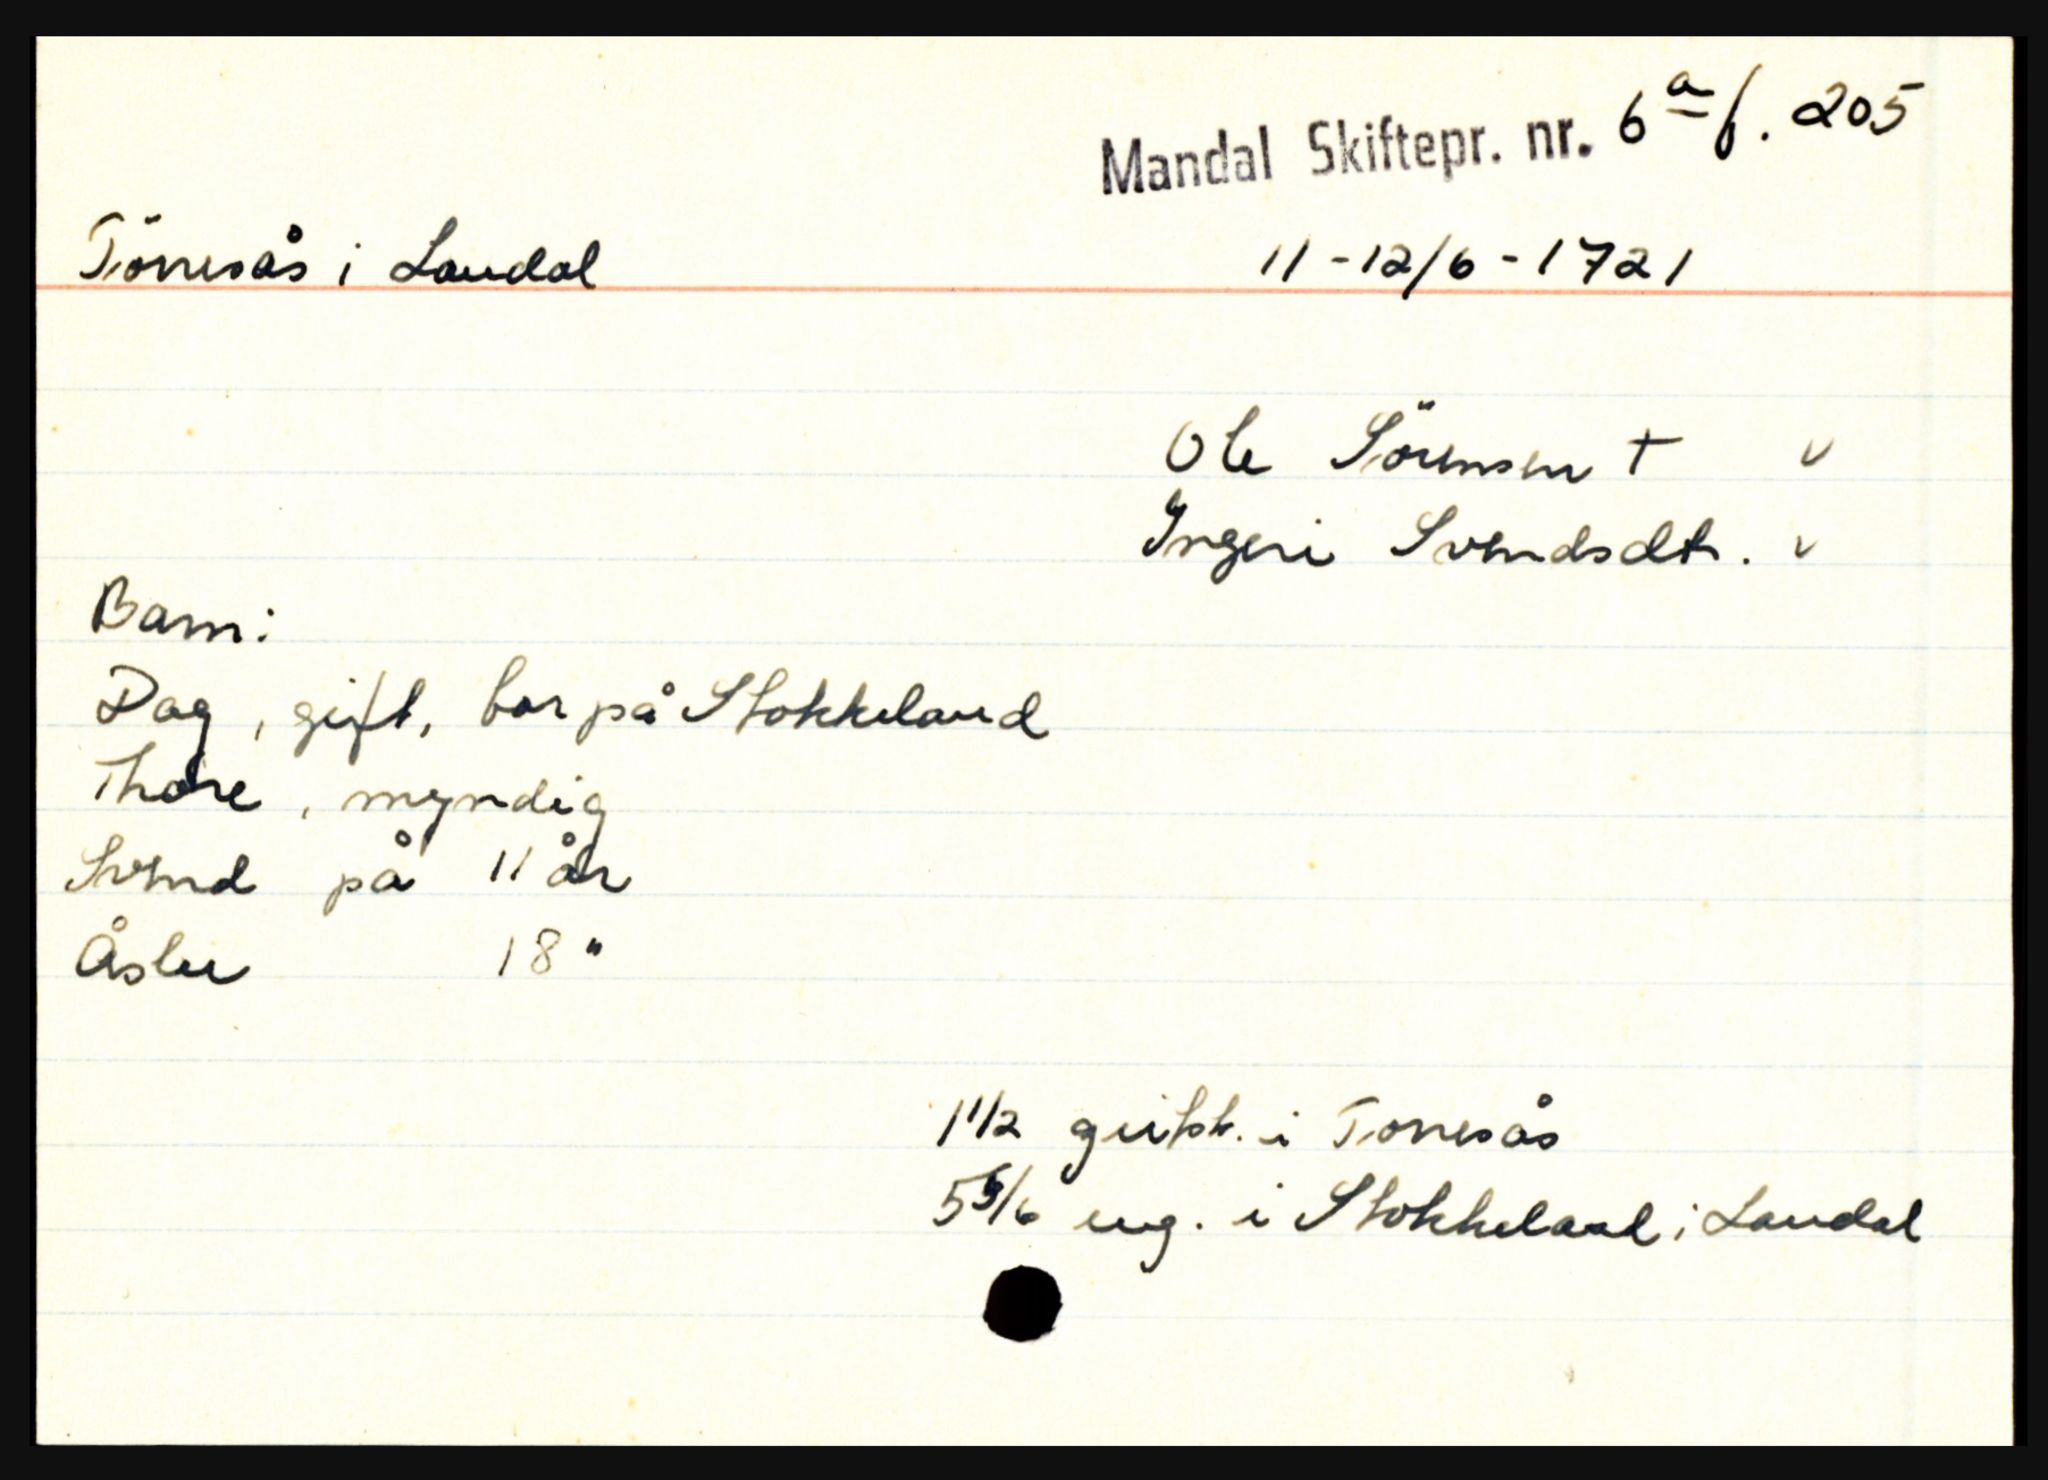 Mandal Skiftepr. nr. 6a f. 205
Tönnesås i Laudal 11-12/6-1721
Ole Sörensen † v
Ingeri Svendsdtr. v
Barn:
Dag, gift, bor på Stokkeland
Thore, myndig
Svend på 11 år
Åsleu 18 "
1 1/2 geitsk. i Tonesås
5 5/6 eng. i Stokkeland i Laudal